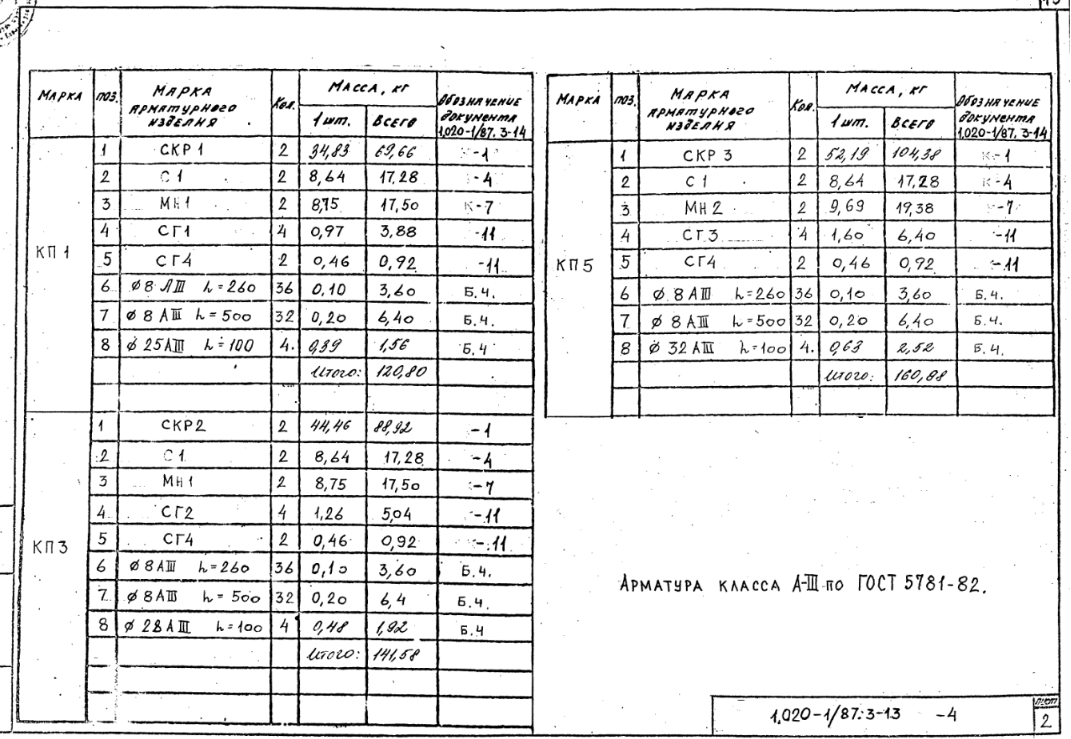 МАРКА ПОЗ. МАРКА АРМАТУРНОГО ИЗДЕЛИЯ Кол. МАССА, кг ОБОЗНАЧЕНИЕ ДОКУМЕНТА 1.020-1/87. 3-14
1 шт. ВСЕГО
КП 1
1 СКР 1 2 34,83 69,66 -1
2 С 1 2 8,64 17,28 -4
3 МН 1 2 8,75 17,50 К-7
4 СГ1 4 0,97 3,88 -11
5 СГ4 2 0,46 0,92 -11
6 ϕ 8 АIII h=260 36 0,10 3,60 Б.Ч.
7 ϕ 8 АIII h=500 32 0,20 6,40 Б.Ч.
8 ϕ 25АIII h=100 4. 0,39 1,56 Б.Ч
Итого: 120,80
КП3
1 СКР2 2 44,46 88,92 -1
2 С 1 2 8,64 17,28 -4
3 МН 1 2 8,75 17,50 -7
4 СГ2 4 1,26 5,04 -11
5 СГ4 2 0,46 0,92 -11
6 ϕ 8АIII h=260 36 0,10 3,60 Б.Ч.
7. ϕ 8АIII h=500 32 0,20 6,4 Б.Ч.
8 ϕ 28АIII h=100 4 0,48 1,92 Б.Ч
Итого: 141,58
МАРКА ПОЗ. МАРКА АРМАТУРНОГО ИЗДЕЛИЯ Кол. МАССА, кг ОБОЗНАЧЕНИЕ ДОКУМЕНТА 1.020-1/87. 3-14
1 шт. ВСЕГО
КП5
1 СКР 3 2 52,19 104,38 К-1
2 С 1 2 8,64 17,28 К-4
3 МН 2 2 9,69 19,38 -7
4 СГ3 4 1,60 6,40 -11
5 СГ4 2 0,46 0,92 -11
6 ϕ 8АIII h=260 36 0,10 3,60 Б.Ч.
7 ϕ 8АIII h=500 32 0,20 6,40 Б.Ч.
8 ϕ 32АIII h=100 4. 0,63 2,52 Б.Ч.
Итого: 160,88
АРМАТУРА КЛАССА А-III ПО ГОСТ 5781-82.
1.020-1/87.3-13 -4
ЛИСТ
2